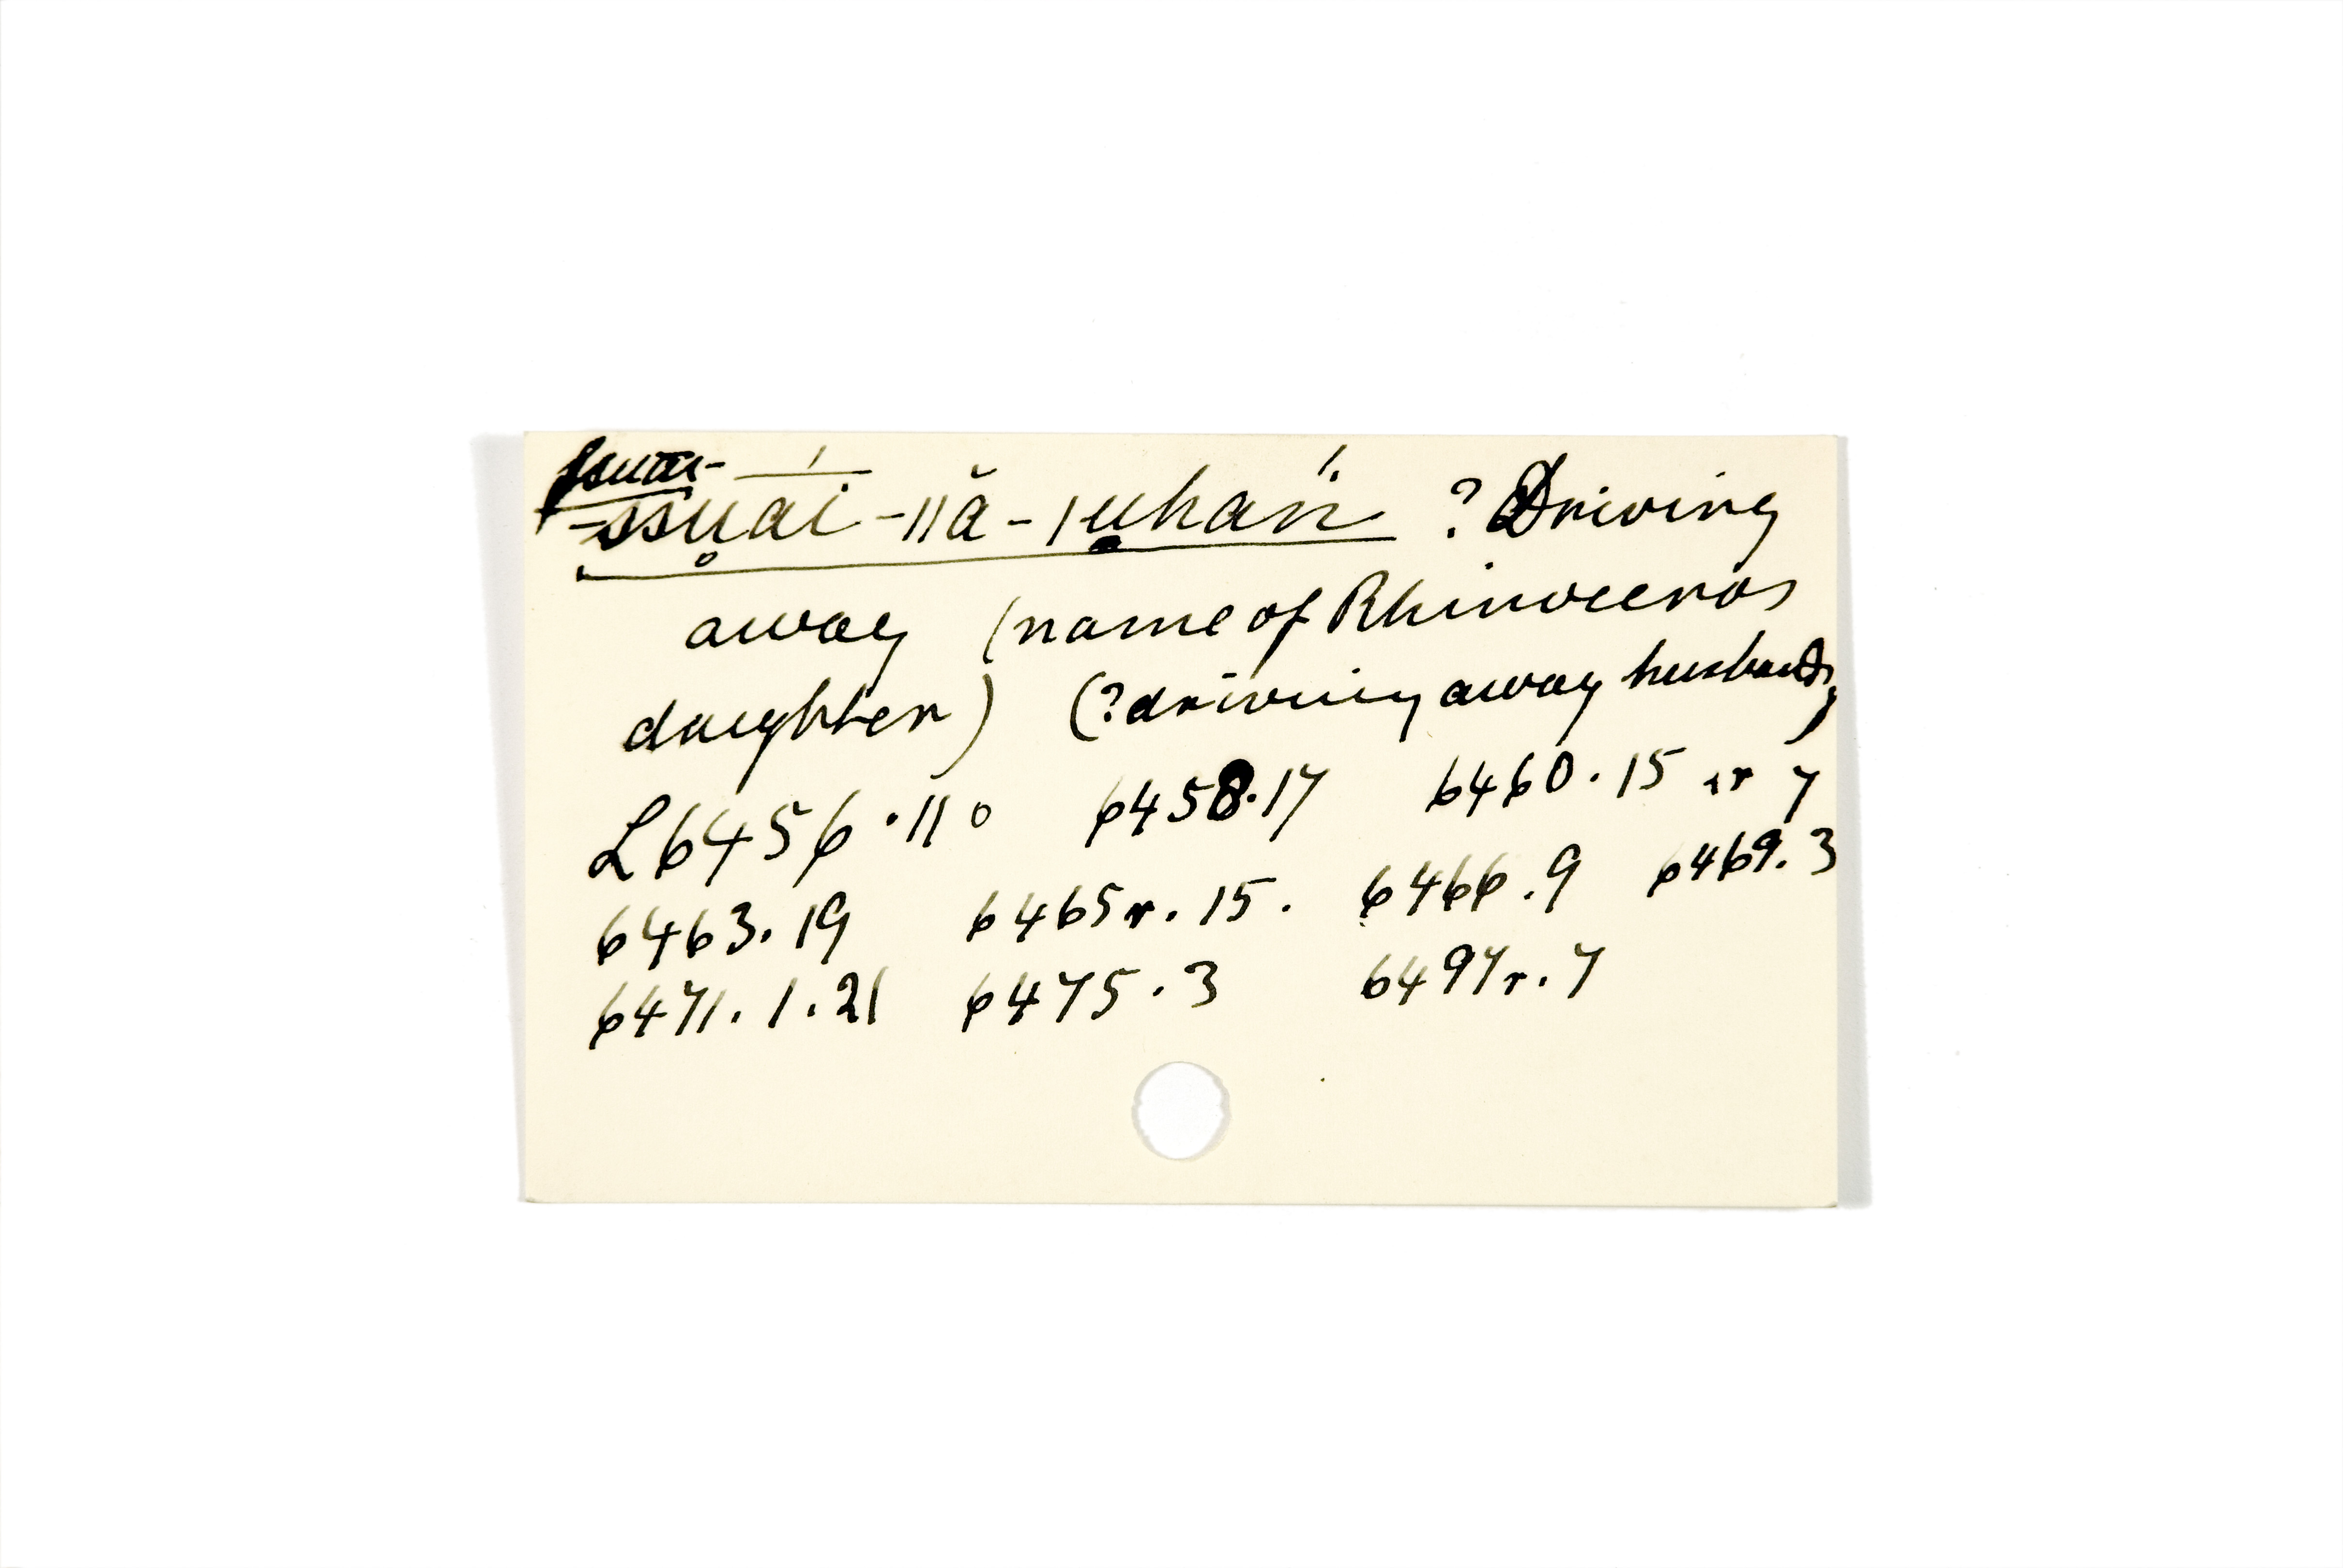 ssuai -ǁă-ǀuhaṅ ? Driving
away (name of Rhinoceros
daughter) (?driving away husband)
L6456.11 o 6458.17 6460.15 r 7
6463.19 6465r.15. 6466.9 6469.3
6471.1.21 6475.3 6497r.7